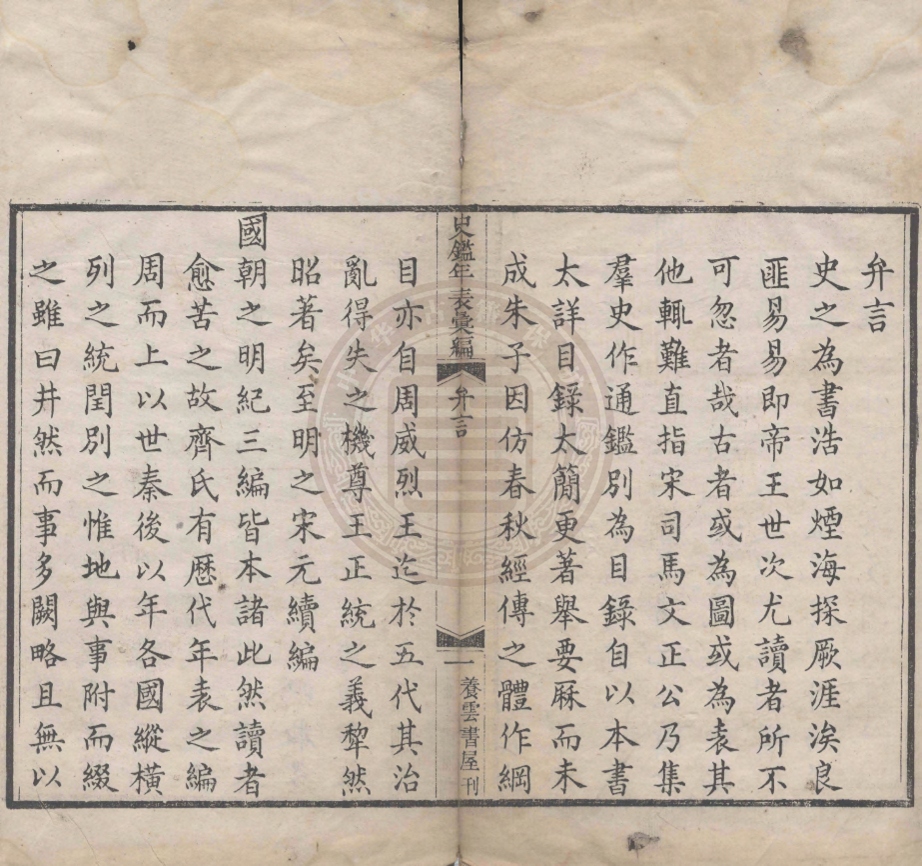 弁言
史之為書浩如煙海探厥涯涘良
匪易易即帝王世次尤讀者所不
可忽者哉古者或為圖或為表其
他輒難直指宋司馬文正公乃集
羣史作通鑑別為目錄自以本書
太詳目錄太簡更著舉要厤而未
成朱子因仿春秋經傳之體作綱
史鑑年表彙編
弁言
一
養雲書屋刊
目亦自周威烈王迄於五代其治
亂得失之機尊王正統之義犂然
昭著矣至明之宋元續編
國朝之明紀三編皆本諸此然讀者
愈苦之故齊氏有歷代年表之編
周而上以世秦後以年各國縱橫
列之統閏別之惟地與事附而綴
之雖曰井然而事多闕略且無以